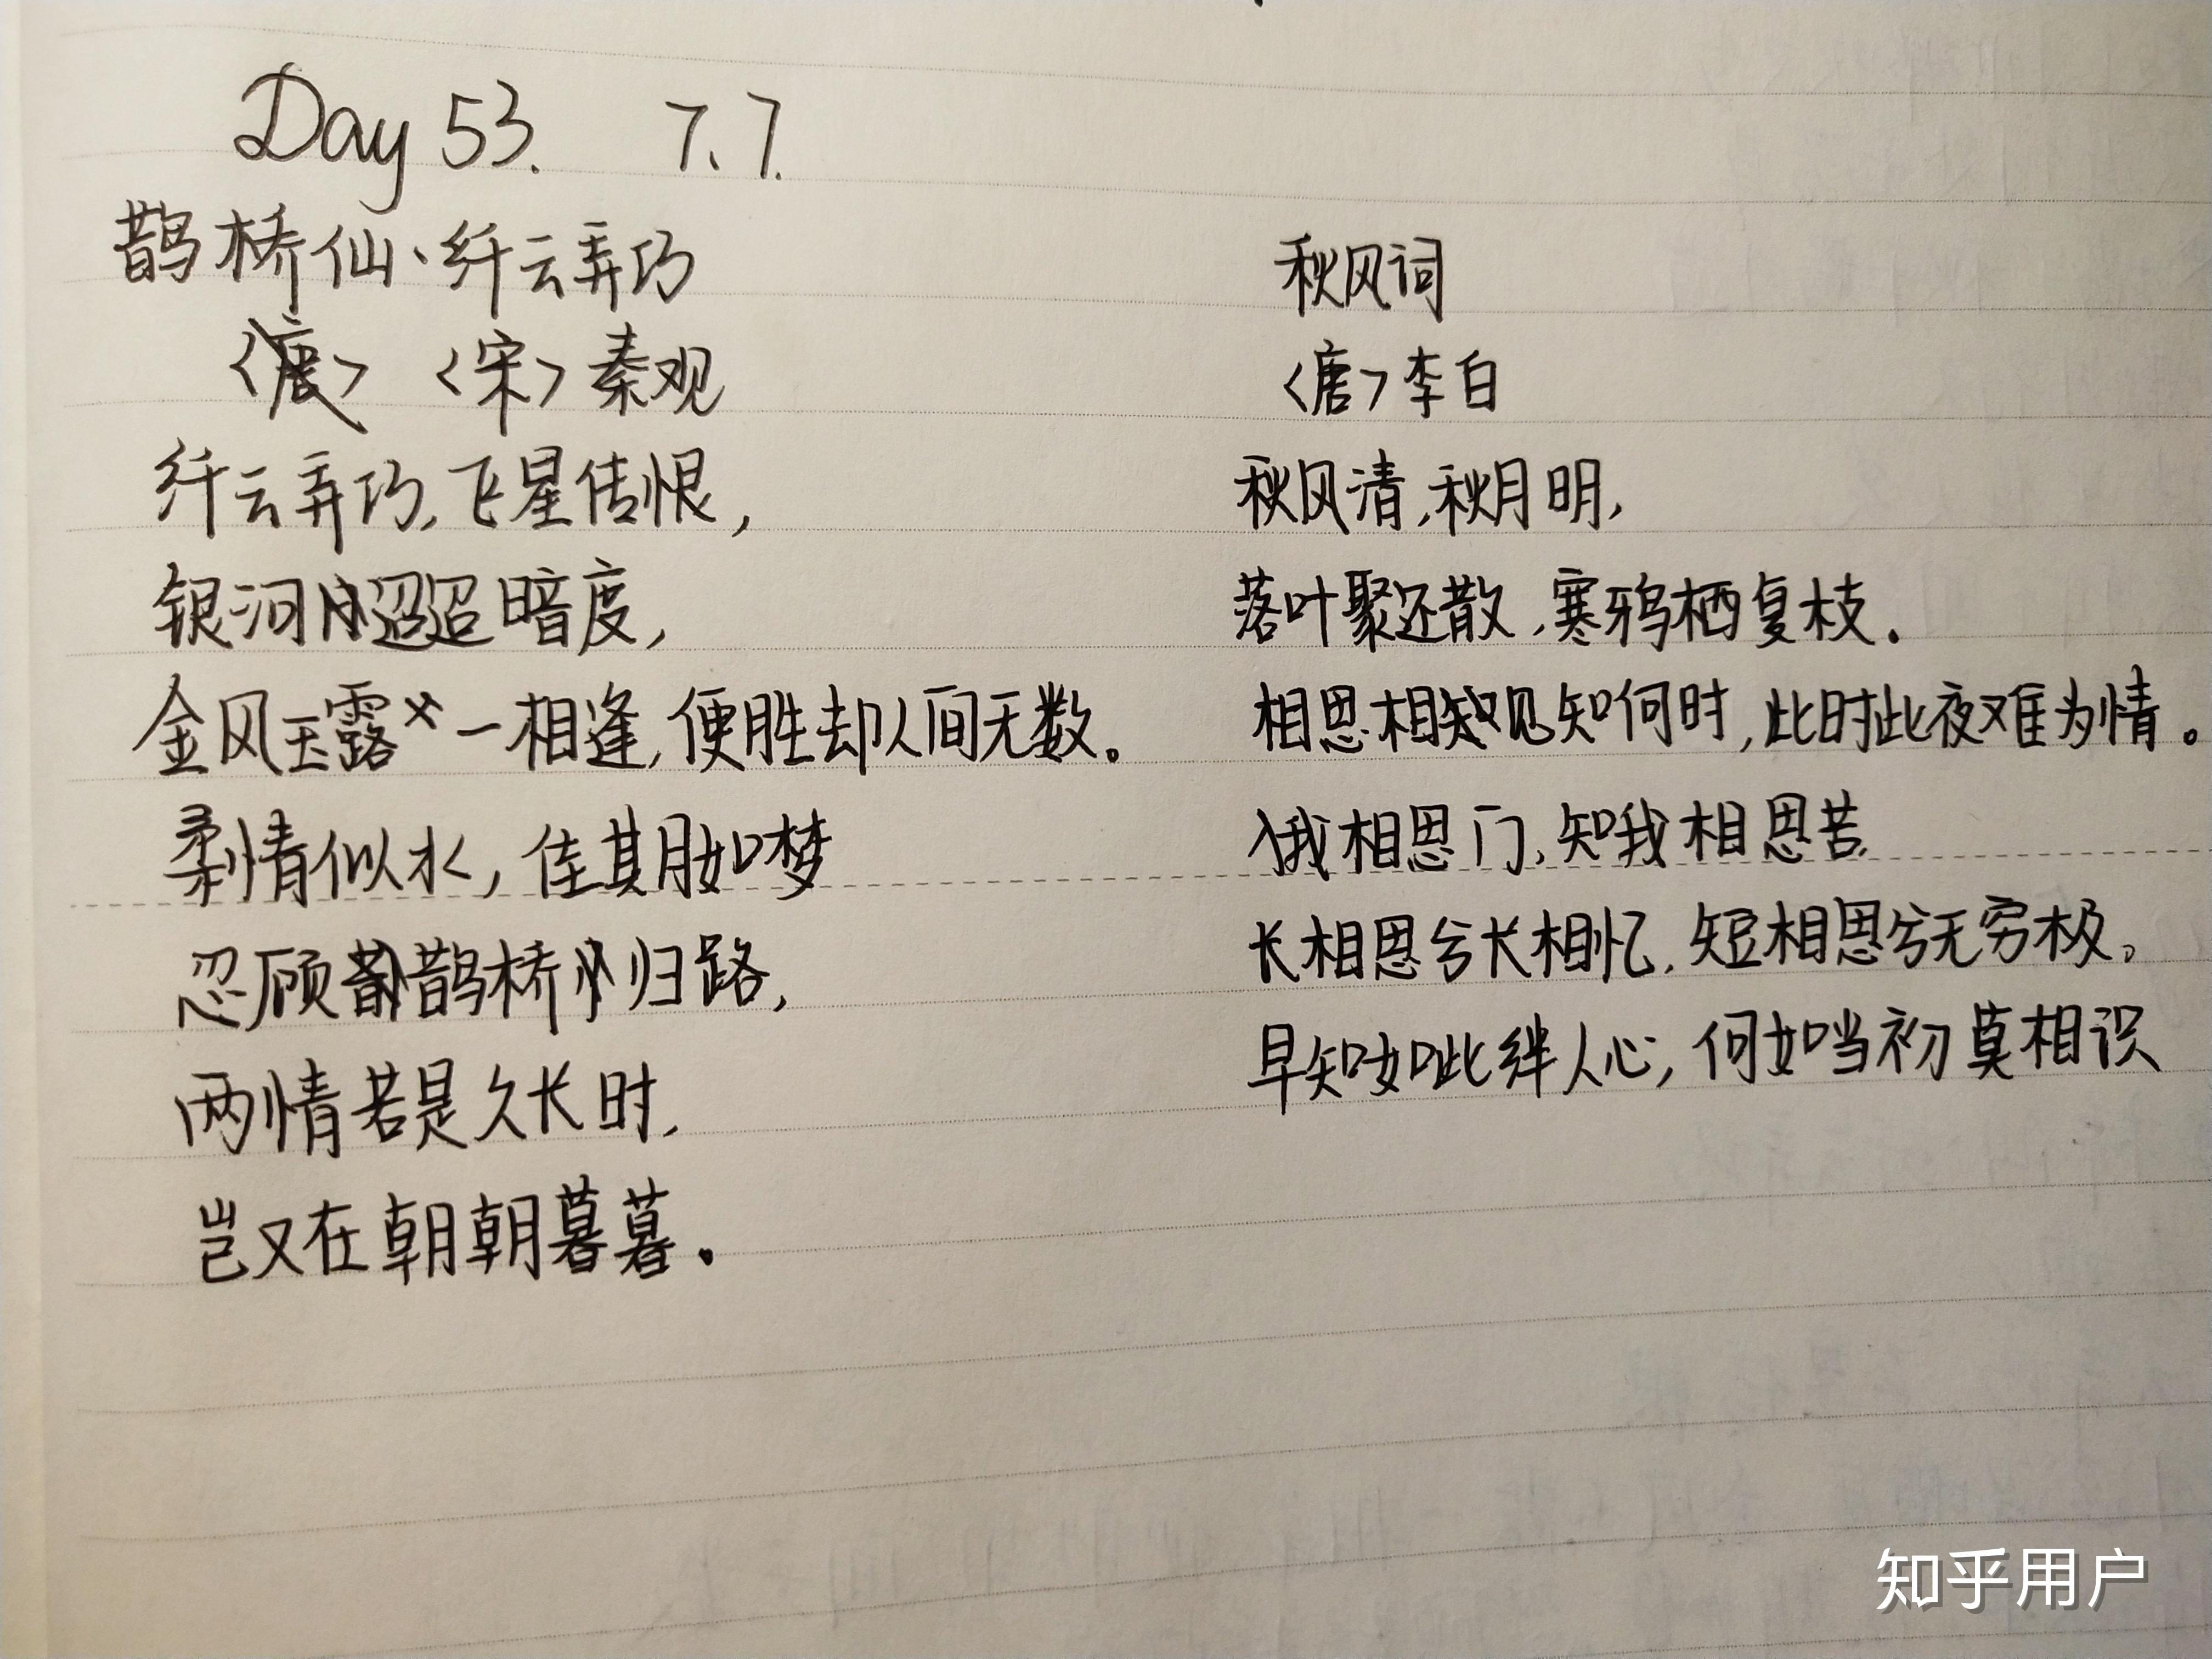 Day 53. 7.7.
鹊桥仙·纤云弄巧
〈唐〉〈宋〉秦观
纤云弄巧,飞星传恨,
银河迢迢暗度,
金风玉露一相逢,便胜却人间无数。
柔情似水,佳期如梦
忍顾鹊桥归路,
两情若是久长时,
岂又在朝朝暮暮.
秋风词
〈唐〉李白
秋风清,秋月明,
落叶聚还散,寒鸦栖复枝.
相思相见知何时,此时此夜难为情。
入我相思门,知我相思苦,
长相思兮长相忆,短相思兮无穷极。
早知如此绊人心,何如当初莫相识
知乎用户